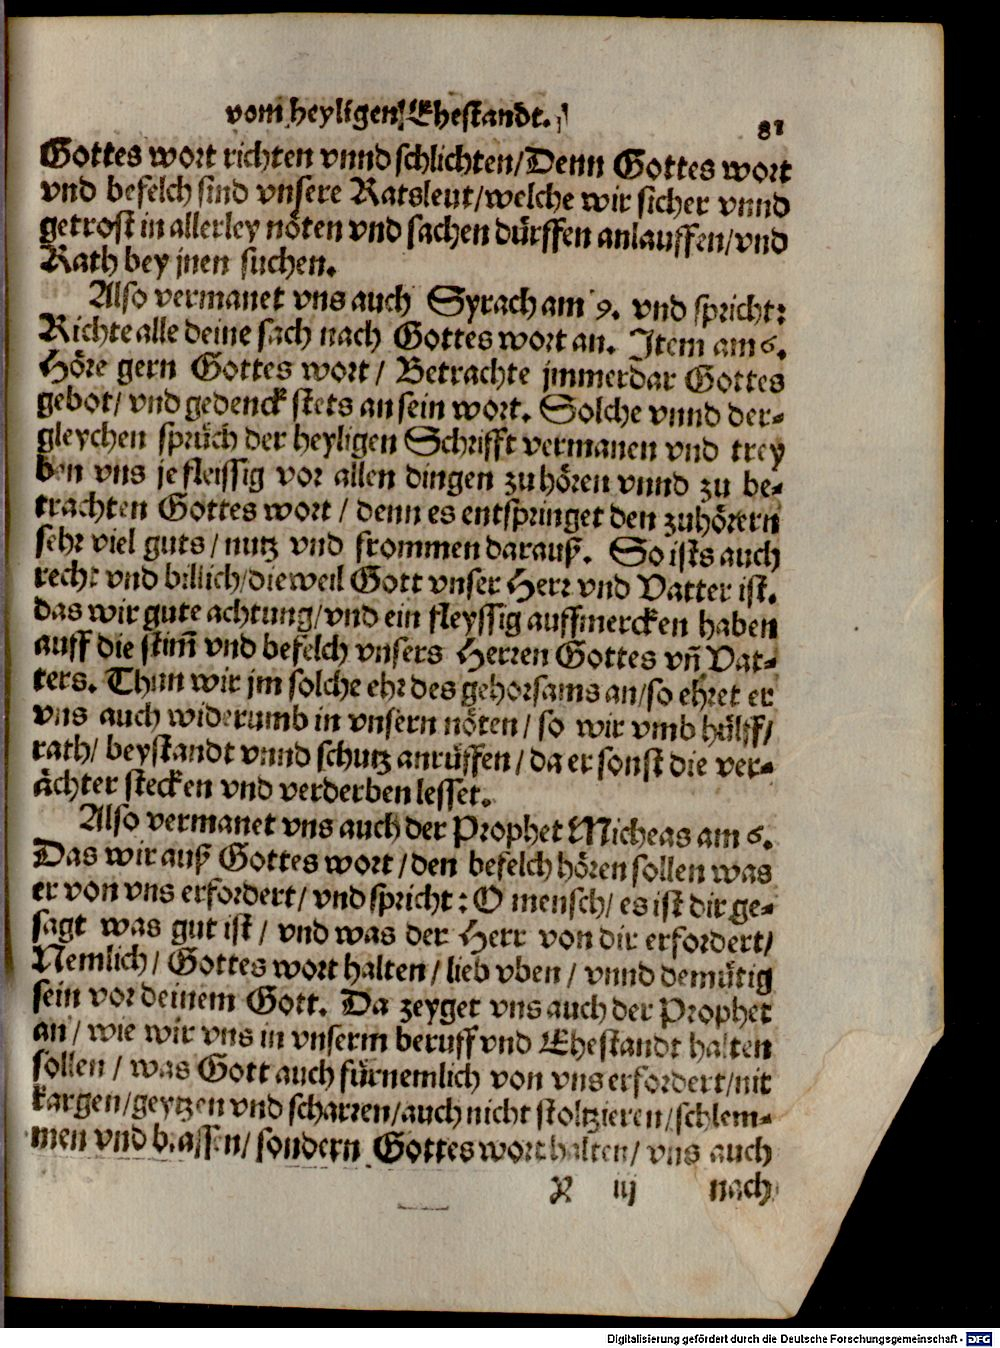 vom heyligen Ehestandt.
81
Gottes wort richten vnnd schlichten/Denn Gottes wort
vnd befelch sind vnsere Ratsleut/welche wir sicher vnnd
getrost in allerley nöten vnd sachen dürffen anlauffen/vnd
Rath bey jnen suchen.
Also vermanet vns auch Syrach am 9. vnd spricht:
Richte alle deine sach nach Gottes wort an. Item am 6.
Höre gern Gottes wort/ Betrachte jmmerdar Gottes
gebot/ vnd gedenck stets an sein wort. Solche vnnd der-
gleychen sprüch der heyligen Schrifft vermanen vnd trey
ben vns je fleissig vor allen dingen zu hören vnnd zu be-
trachten Gottes wort/ denn es entspringet den zuhörern
sehr viel guts/ nutz vnd frommen darauß. So ists auch
recht vnd billich/dieweil Gott vnser Herr vnd Vatter ist.
das wir gute achtung/vnd ein fleyssig auffmercken haben
auff die stim̃ vnd befelch vnsers Herren Gottes vñ Vat-
ters. Thun wir jm solche ehr des gehorsams an/so ehret er
vns auch widerumb in vnsern nöten/ so wir vmb hülff/
rath/ beystandt vnnd schutz anrüffen/ da er sonst die ver-
ächter stecken vnd verderben lesset.
Also vermanet vns auch der Prophet Micheas am 6.
Das wir auß Gottes wort/den befelch hören sollen was
er von vns erfordert/ vnd spricht: O mensch/ es ist dir ge-
sagt was gut ist/ vnd was der Herr von dir erfordert/
Nemlich/ Gottes wort halten/ lieb vben/ vnnd demütig
sein vor deinem Gott. Da zeyget vns auch der Prophet
an/ wie wir vns in vnserm beruff vnd Ehestandt halten
sollen/ was Gott auch fürnemlich von vns erfordert/nit
kargen/geytzen vnd scharren/auch nicht stoltzieren/schlem-
men vnd brassen/ sondern Gottes wort halten/ vns auch
X iij nach
Digitalisierung gefördert durch die Deutsche Forschungsgemeinschaft - DFG